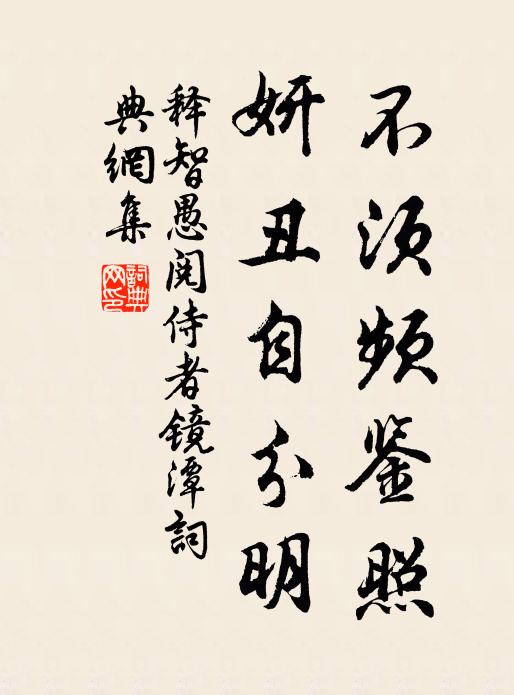 不须频鉴照
妍丑自分明
释智愚阅侍者镜潭詞
典網集
詞典网印